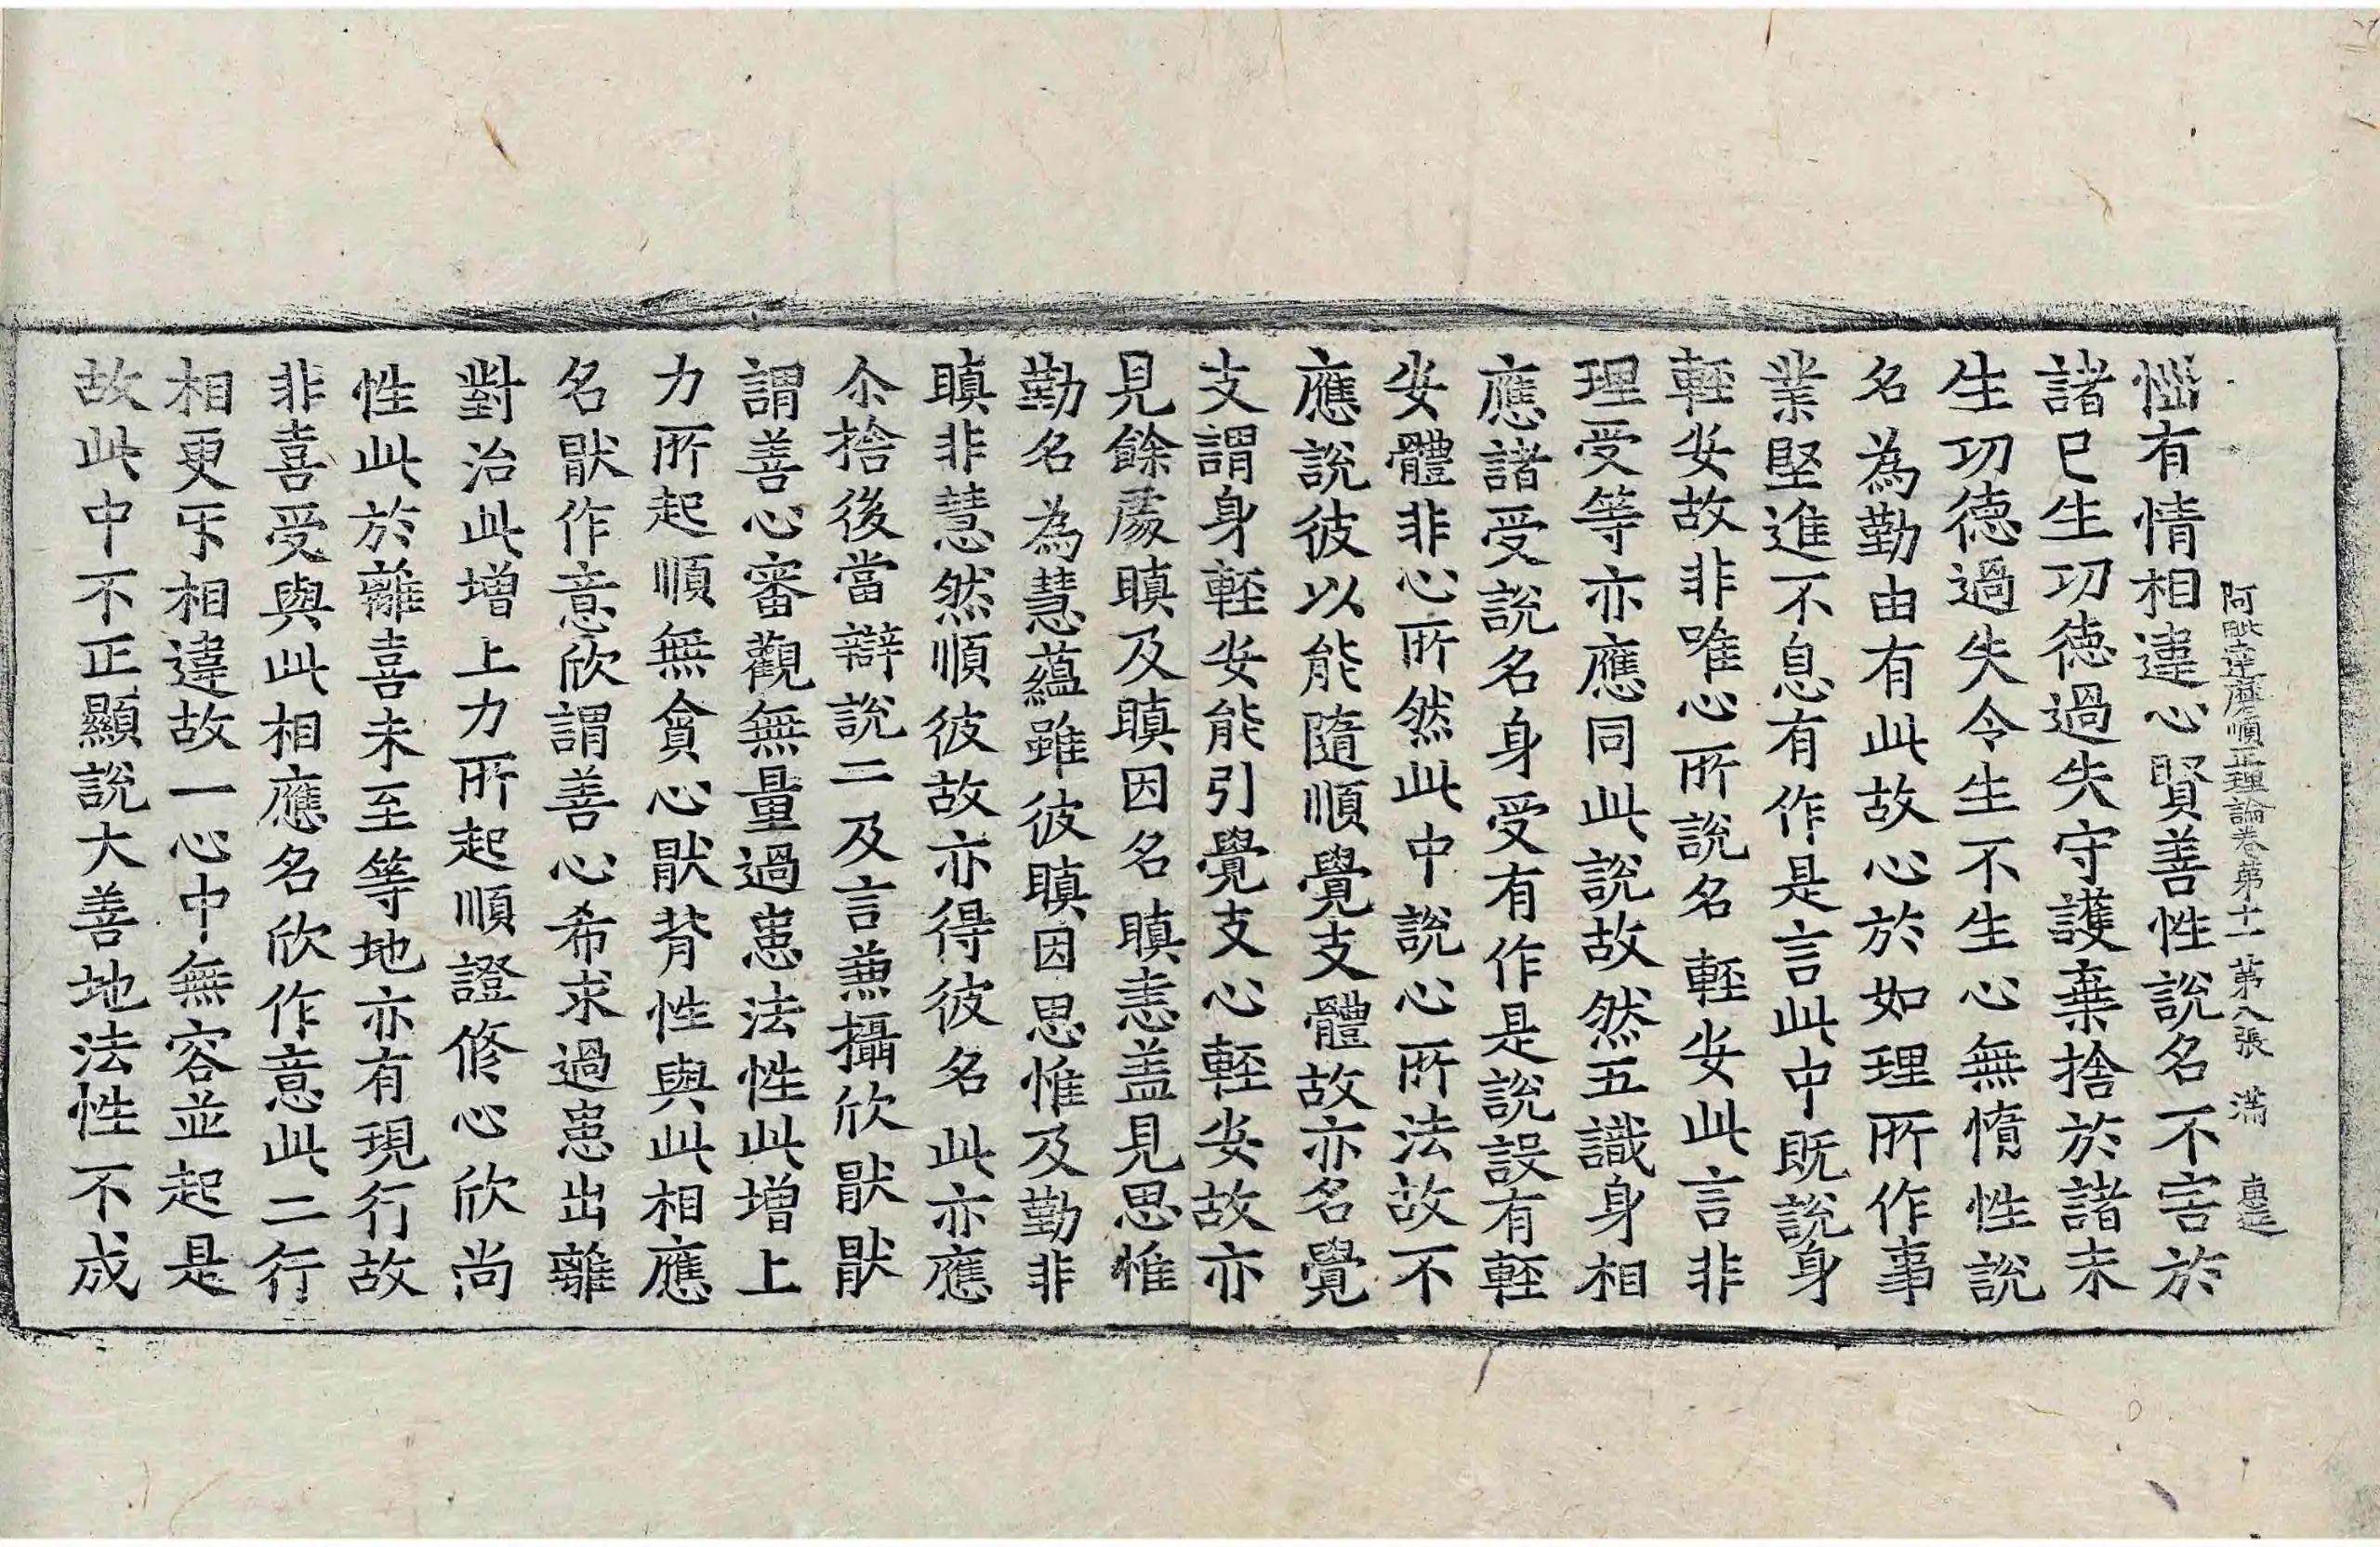 阿毗達磨順正理論卷第十一 第八張 滿 惠㢠
惱有情相違心賢善性說名不害於
諸已生功德過失守護棄捨於諸未
生功德過失令生不生心無惰性說
名為勤由有此故心於如理所作事
業堅進不息有作是言此中旣說身
輕安故非唯心所說名輕安此言非
理受等亦應同此說故然五識身相
應諸受說名身受有作是說設有輕
安體非心所然此中說心所法故不
應說彼以能隨順覺支體故亦名覺
支謂身輕安能引覺支心輕安故亦
見餘處瞋及瞋因名瞋恚盖見思惟
勤名為慧蘊雖彼瞋因思惟及勤非
瞋非慧然順彼故亦得彼名此亦應
尒捨後當辯說二及言兼攝欣猒猒
謂善心審觀無量過患法性此增上
力所起順無貪心猒背性與此相應
名猒作意欣謂善心希求過患出離
對治此增上力所起順證修心欣尚
性此於離喜未至等地亦有現行故
非喜受與此相應名欣作意此二行
相更互相違故一心中無容並起是
故此中不正顯說大善地法性不成